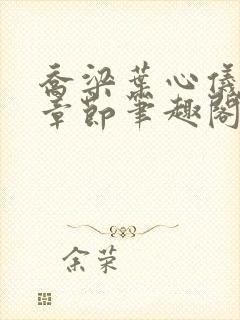 乔梁叶心仪
章节笔趣阁
余荣